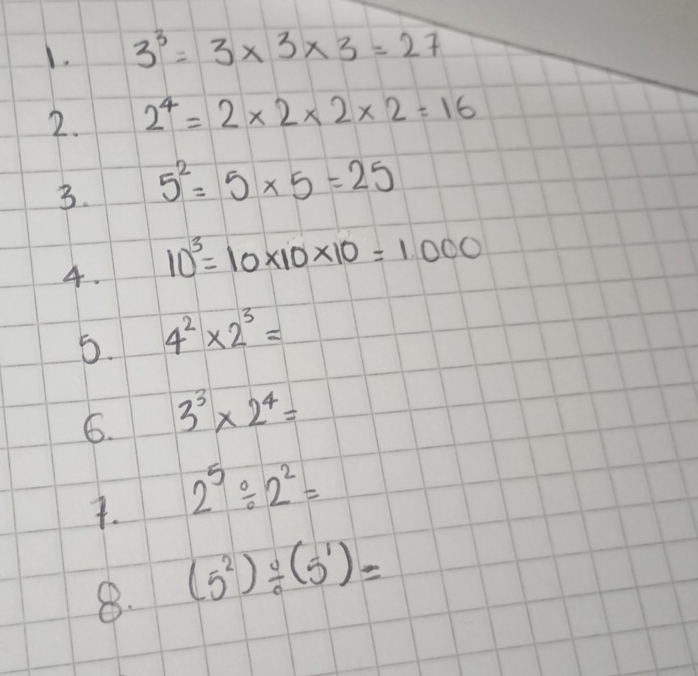 1. 3³ = 3 × 3 × 3 = 27
2. 2⁴ = 2 × 2 × 2 × 2 = 16
3. 5² = 5 × 5 = 25
4. 10³ = 10 × 10 × 10 = 1000
5. 4² × 2³ =
6. 3³ × 2⁴ =
7. 2⁵ ÷ 2² =
8. (5²) ÷ (5¹) =